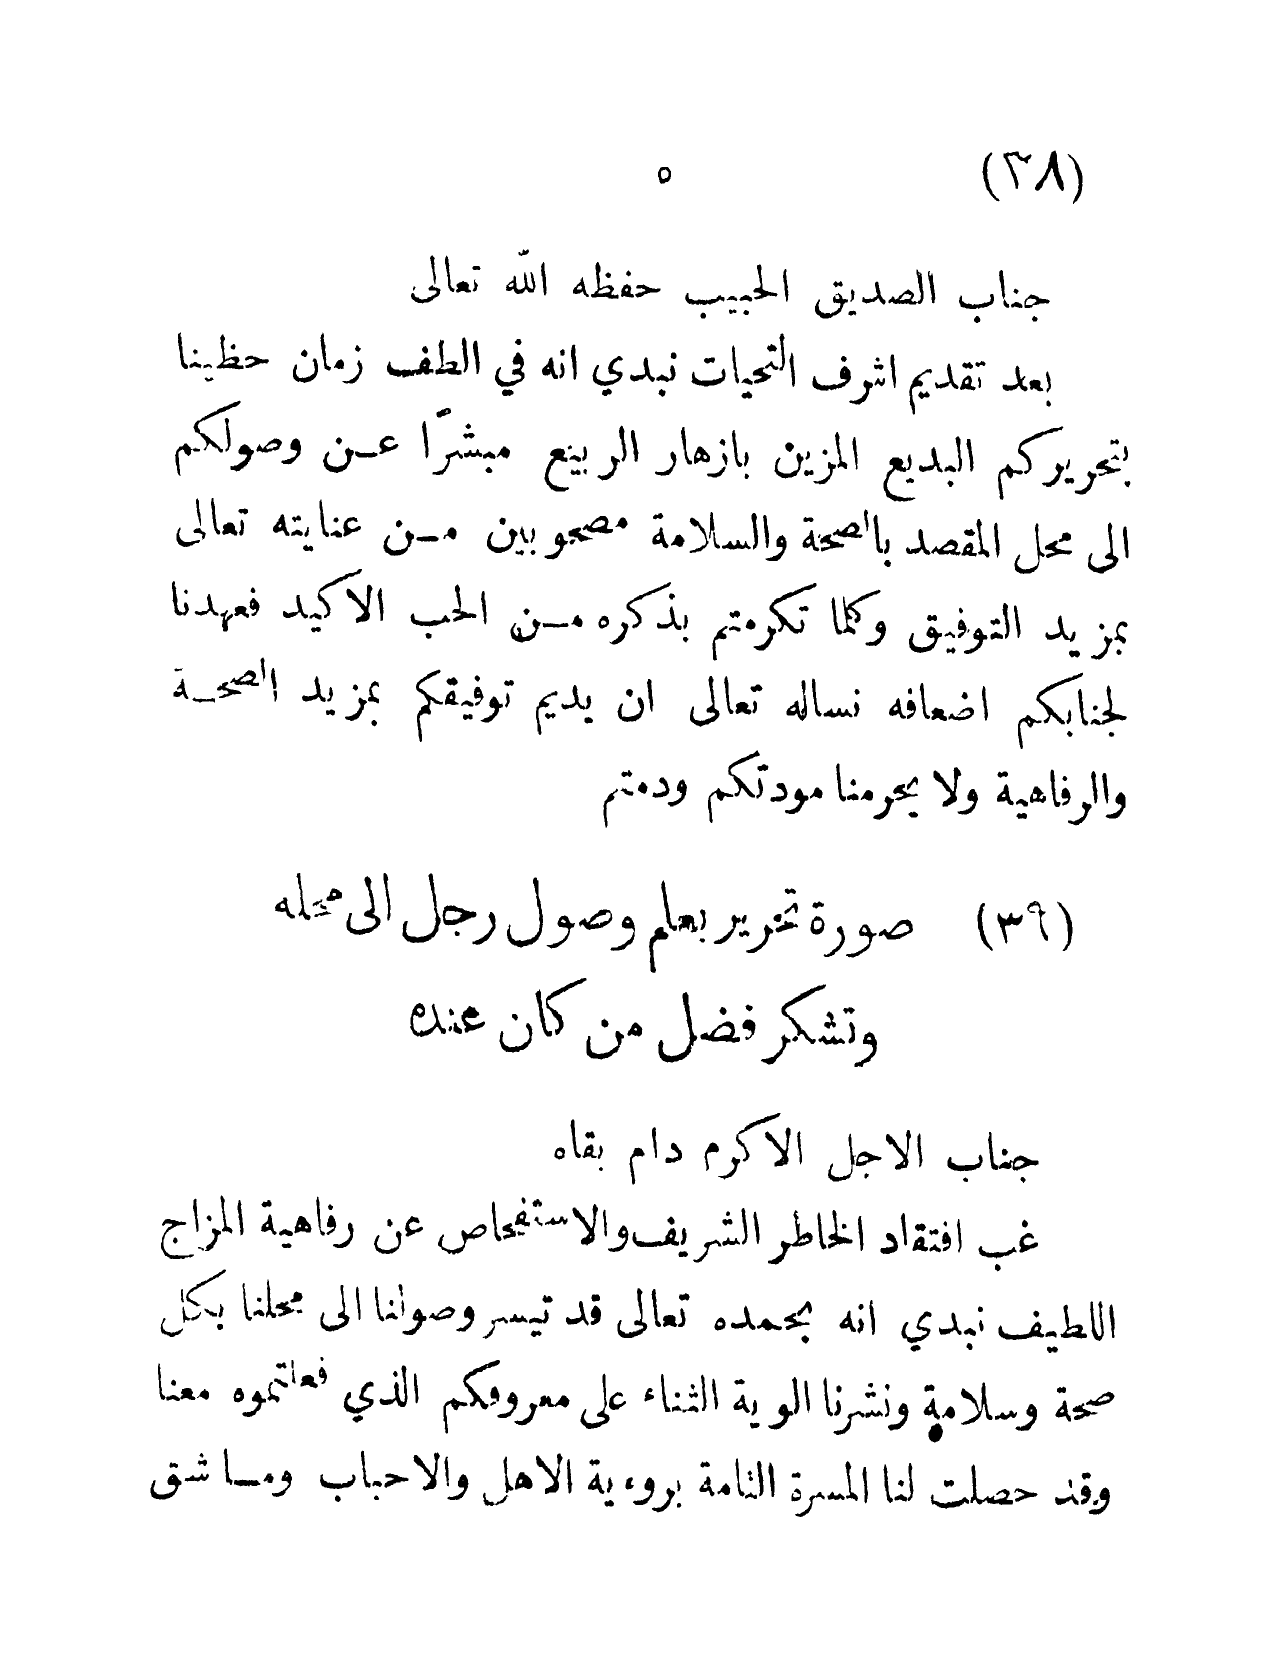 (٣٨) ٥
جناب الصديق الحبيب حفظه اللّه تعالى
بعد تقديم اشرف التحيات نبدي انه في الطف زمان حظينا
بتحريركم البديع المزين بازهار الربيع مبشرًا عـن وصولكم
الى محل المقصد بالصحة والسلامة مصحوبين مـن عنايته تعالى
بمزيد التوفيق وكلما تكرمتم بذكره مـن الحب الاكيد فعهدنا
لجنابكم اضعافه نساله تعالى ان يديم توفيقكم بمزيد الصحـة
والرفاهية ولا يحرمنا مودتكم ودمتم
(٣٩) صورة تحرير بعلم وصول رجل الى محله
وتشكر فضل من كان عنده
جناب الاجل الاكرم دام بقاه
غب افتقاد الخاطر الشريف والاستفحاص عن رفاهية المزاج
اللطيف نبدي انه بحمده تعالى قد تيسر وصولنا الى محلنا بكل
صحة وسلامة ونشرنا الوية الثناء على معروفكم الذي فعلتموه معنا
وقد حصلت لنا المسرة التامة بروءية الاهل والاحباب ومـا شق